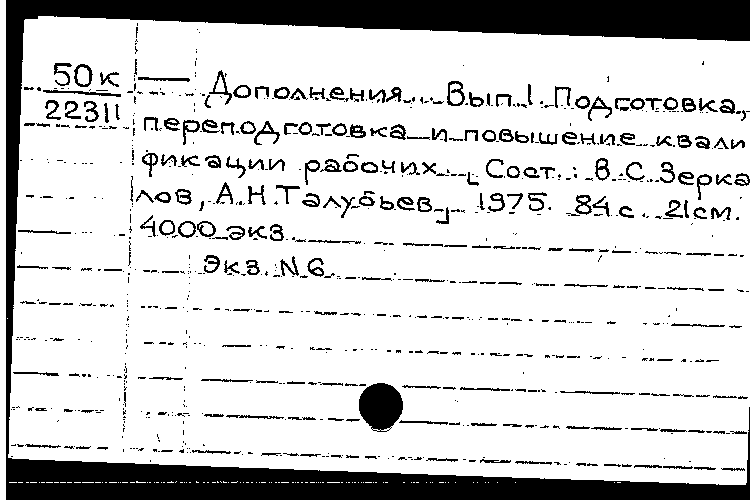 50к
22311
— Дополнения. Вып. 1. Подготовка,
переподготовка и повышение квали
фикации рабочих. [Сост.: В.С. Зерка
лов, А.Н. Талубьев] 1975. 84 с. 21 см.
4000 экз.
Экз. N6.